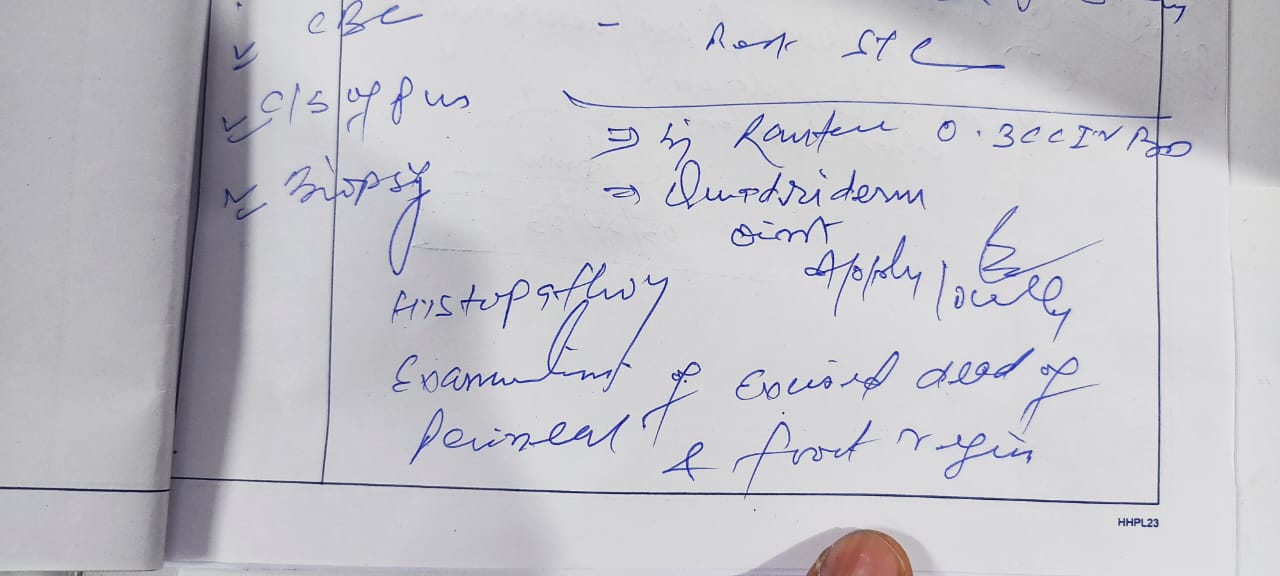 CBC
- Rest STC
C/S of Pus
⇒ Inj Rantac 0.3CC IV BD
Biopsy
⇒ Quadriderm
oint
Apply locally
Histopathoy
Examination of Excised dead of
Perineal & foot region
HHPL23